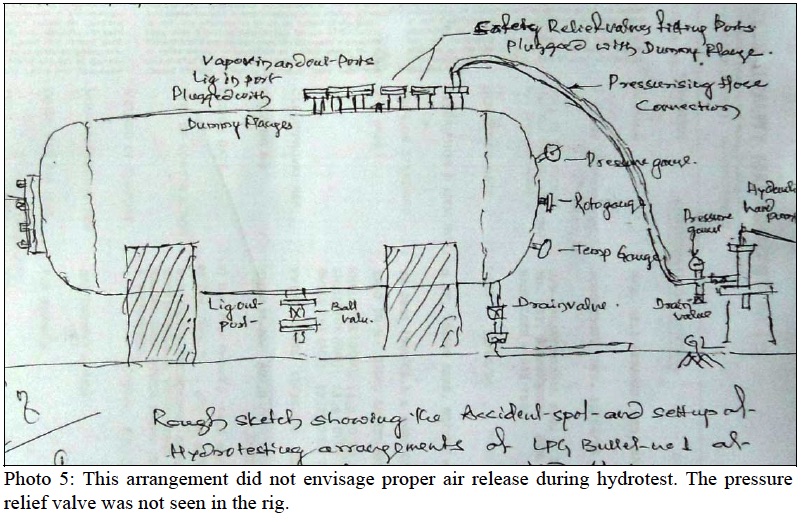 Safety Relief valves fitting Ports
Plugged with Dummy Flange.
Vapor in and out-Ports
Liq in port
Plugged with
Dummy Flanges
Pressurising Hose
Connection
Pressure gauge.
Roto gauge
Temp Gauge
Pressure
gauge
Hydraulic
hand pump
Liq out
port-
Ball
valu.
Drain valve.
Drain
value
GL
Rough sketch showing the Accident-spot-and setup of-
Hydrotesting arrangements of LPG Bullet-no 1 at-
Photo 5: This arrangement did not envisage proper air release during hydrotest. The pressure
relief valve was not seen in the rig.